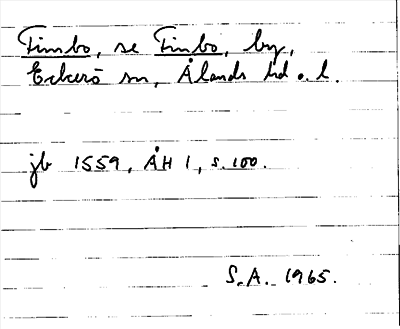 Finnbo, se Finnbo, by,
Eckerö sn, Ålands hd o. l.
jb 1559, ÅH 1, s. 100.
S.A. 1965.